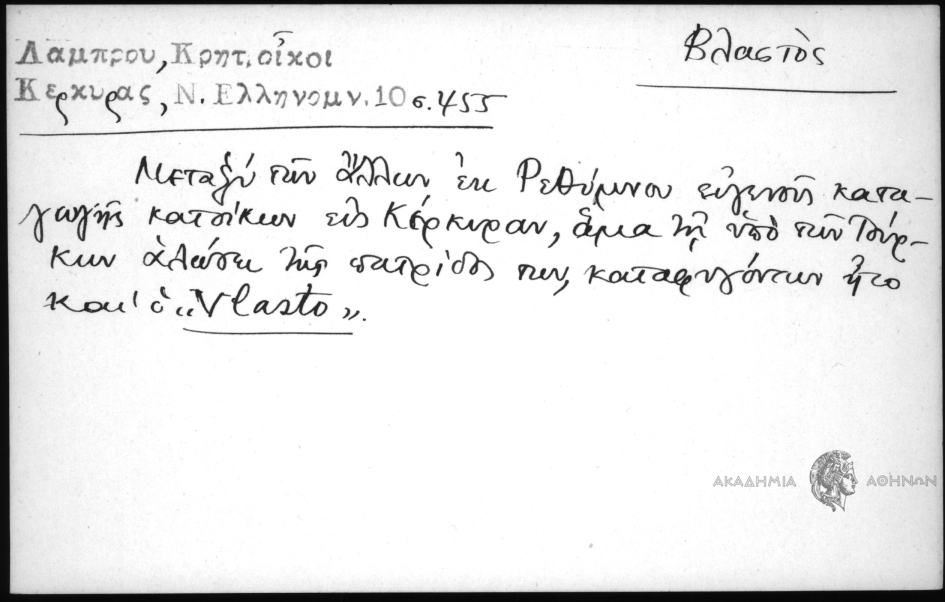 Βλαστὸς
Λαμπρου, Κρητ. οἶκοι
Κερκυρας, Ν. Ελληνομν. 10 σ. 455
Μεταξὺ τῶν ἄλλων ἐκ Ρεθύμνου εὐγενοῦς κατα-
γωγῆς κατοίκων εἰς Κέρκυραν, ἅμα τῇ ὑπὸ τῶν Τούρ-
κων ἁλώσει τῆς πατρίδος των, καταφυγόντων ἦτο
και' ὁ «Vlasto».
ΑΚΑΔΗΜΙΑ ΑΘΗΝΩΝ